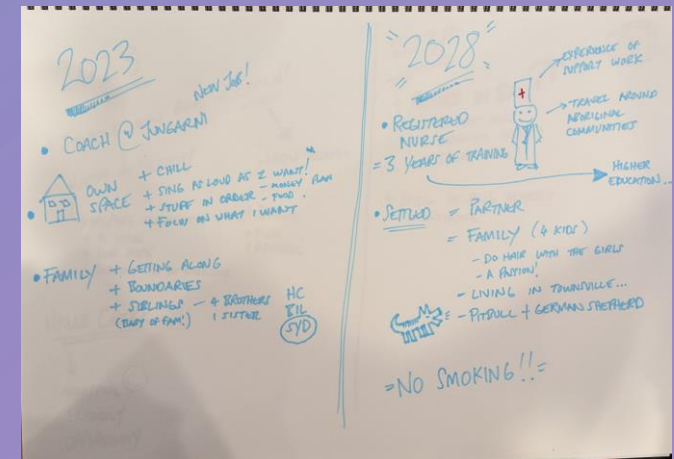 2023
NEW JOB!
• COACH @ JUNGARNI
• OWN SPACE
+ CHILL
+ SING AS LOUD AS I WANT!
+ STUFF IN ORDER - MONEY PLAN
- FOOD
+ FOCUS ON WHAT I WANT
• FAMILY + GETTING ALONG
+ BOUNDARIES
+ SIBLINGS - 4 BROTHERS
(BABY OF FAM!) 1 SISTER
HC
BIL
SYD
"2028"
• REGISTERED
NURSE
= 3 YEARS OF TRAINING
EXPERIENCE OF
SUPPORT WORK
TRAVEL AROUND
ABORIGINAL
COMMUNITIES
HIGHER
EDUCATION...
• SETTLED = PARTNER
= FAMILY (4 KIDS)
- DO HAIR WITH THE GIRLS
- A PASSION!
- LIVING IN TOWNSVILLE...
- PITBULL + GERMAN SHEPHERD
=NO SMOKING!!=